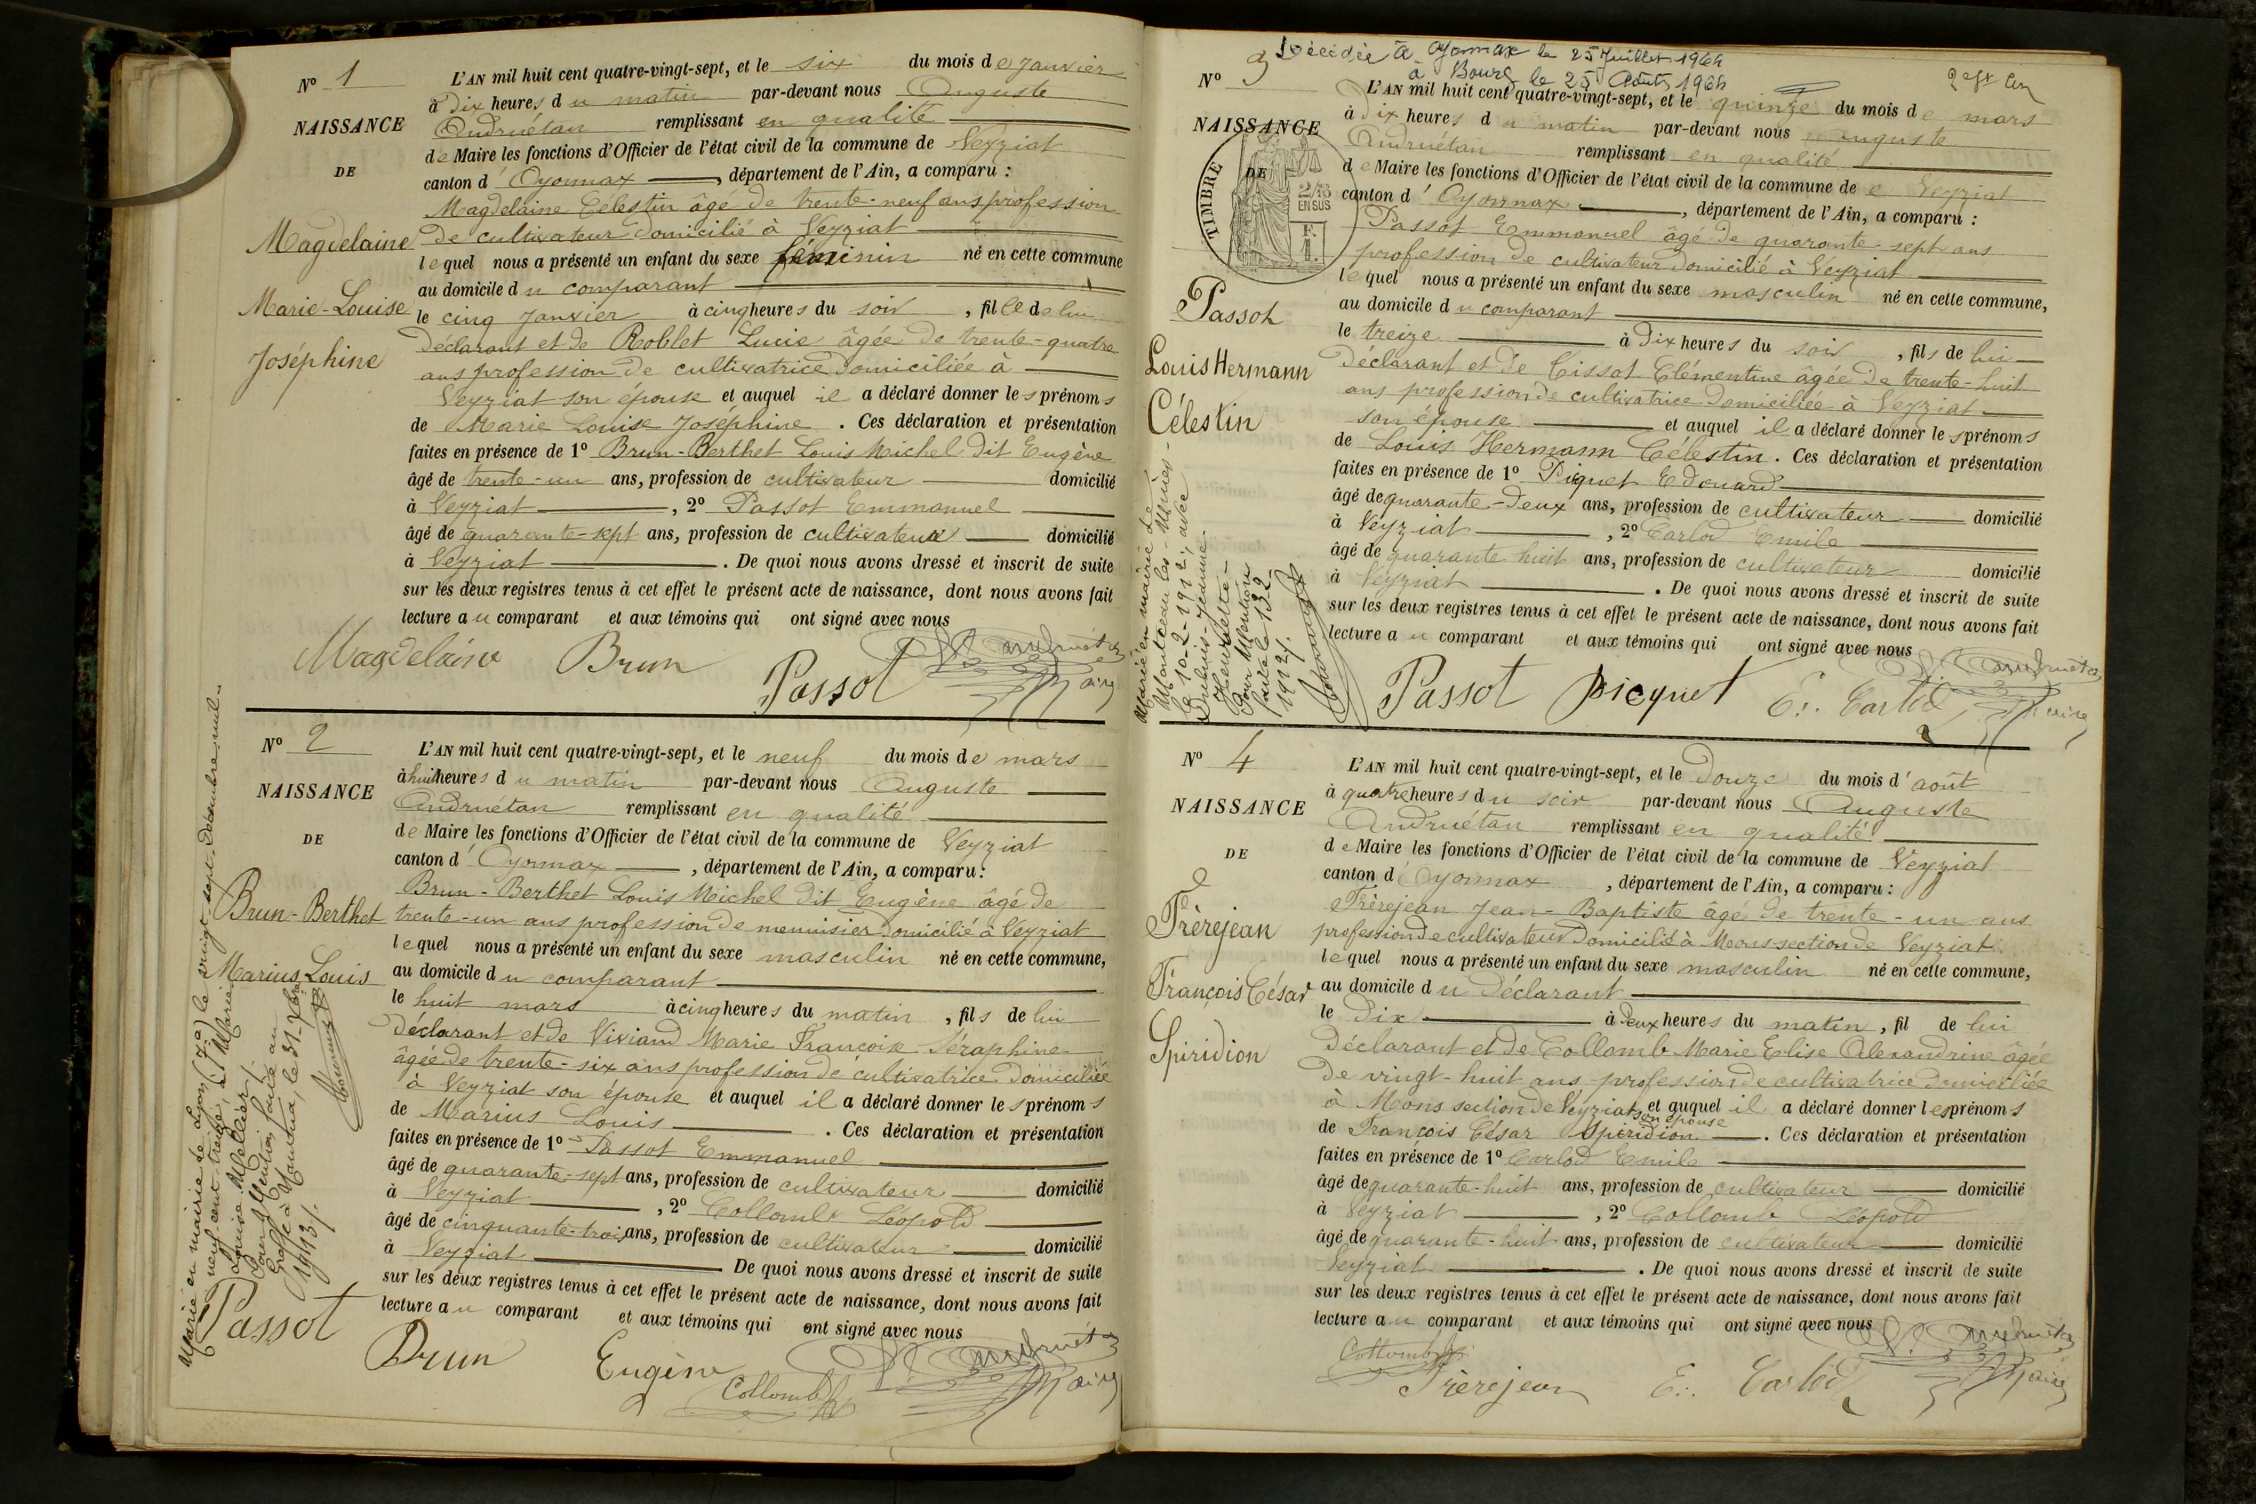 N° 1
NAISSANCE
DE
Magdelaine
Marie-Louise
Joséphine
L'AN mil huit cent quatre-vingt-sept, et le six du mois de janvier
à dix heures du matin par-devant nous Auguste
Andruétan remplissant en qualité
de Maire les fonctions d'Officier de l'état civil de la commune de Veyziat
canton d'Oyonnax, département de l'Ain, a comparu :
Magdelaine Célestin âgé de trente-neuf ans profession
de cultivateur domicilié à Veyziat
lequel nous a présenté un enfant du sexe féminin né en cette commune
au domicile du comparant
le cinq janvier à cinq heures du soir, fille de lui
déclarant et de Roblet Lucie âgée de trente-quatre
ans profession de cultivatrice domiciliée à
Veyziat son épouse et auquel il a déclaré donner les prénoms
de Marie Louise Joséphine. Ces déclaration et présentation
faites en présence de 1° Brun-Berthet Louis Michel dit Eugène
âgé de trente-un ans, profession de cultivateur domicilié
à Veyziat, 2° Passot Emmanuel
âgé de quarante-sept ans, profession de cultivateur domicilié
à Veyziat. De quoi nous avons dressé et inscrit de suite
sur les deux registres tenus à cet effet le présent acte de naissance, dont nous avons fait
lecture au comparant et aux témoins qui ont signé avec nous
Magdelaine Brun Passot Andruétan
Maire
N° 2
NAISSANCE
DE
Brun-Berthet
Marius Louis
Marié en mairie de Lyon (7e) le vingt-sept décembre mil
neuf cent trente, à Marie
Louise Mellier
Pour Mention faite au
Greffe à Nantua, le 31-
1931.
L'AN mil huit cent quatre-vingt-sept, et le neuf du mois de mars
à huit heures du matin par-devant nous Auguste
Andruétan remplissant en qualité
de Maire les fonctions d'Officier de l'état civil de la commune de Veyziat
canton d'Oyonnax, département de l'Ain, a comparu :
Brun-Berthet Louis Michel dit Eugène âgé de
trente-un ans profession de menuisier domicilié à Veyziat
lequel nous a présenté un enfant du sexe masculin né en cette commune,
au domicile du comparant
le huit mars à cinq heures du matin, fils de lui
déclarant et de Viviand Marie Françoise Séraphine
âgée de trente-six ans profession de cultivatrice domiciliée
à Veyziat son épouse et auquel il a déclaré donner les prénoms
de Marius Louis. Ces déclaration et présentation
faites en présence de 1° Passot Emmanuel
âgé de quarante-sept ans, profession de cultivateur domicilié
à Veyziat, 2° Collomb Léopold
âgé de cinquante-trois ans, profession de cultivateur domicilié
à Veyziat De quoi nous avons dressé et inscrit de suite
sur les deux registres tenus à cet effet le présent acte de naissance, dont nous avons fait
lecture au comparant et aux témoins qui ont signé avec nous
Passot Brun Eugène Collomb Andruétan
Maire
Décédée à Oyonnax le 25 Juillet 1964
à Bourg le 25 Août 1964
N° 3
NAISSANCE
DE
TIMBRE
EN SUS
Passot
Louis Hermann
Célestin
Marié en mairie de
Montceau-les-Mines
le 10-2-1912, avec
Dubuis Jeanne
Henriette
Pour Mention
faite le 13-2-
1912.
L'AN mil huit cent quatre-vingt-sept, et le quinze du mois de mars
à dix heures du matin par-devant nous Auguste
Andruétan remplissant en qualité
de Maire les fonctions d'Officier de l'état civil de la commune de Veyziat
canton d'Oyonnax, département de l'Ain, a comparu :
Passot Emmanuel âgé de quarante-sept ans
profession de cultivateur domicilié à Veyziat
lequel nous a présenté un enfant du sexe masculin né en cette commune,
au domicile du comparant
le treize à dix heures du soir, fils de lui
déclarant et de Tissot Clémentine âgée de trente-huit
ans profession de cultivatrice domiciliée à Veyziat
son épouse et auquel il a déclaré donner les prénoms
de Louis Hermann Célestin. Ces déclaration et présentation
faites en présence de 1° Piquet Edouard
âgé de quarante-deux ans, profession de cultivateur domicilié
à Veyziat, 2° Carlod Emile
âgé de quarante huit ans, profession de cultivateur domicilié
à Veyziat. De quoi nous avons dressé et inscrit de suite
sur les deux registres tenus à cet effet le présent acte de naissance, dont nous avons fait
lecture au comparant et aux témoins qui ont signé avec nous
Passot picquet E. Carlod Andruétan
Maire
N° 4
NAISSANCE
DE
Frèrejean
François César
Spiridion
L'AN mil huit cent quatre-vingt-sept, et le douze du mois d'août
à quatre heures du soir par-devant nous Auguste
Andruétan remplissant en qualité
de Maire les fonctions d'Officier de l'état civil de la commune de Veyziat
canton d'Oyonnax, département de l'Ain, a comparu :
Frèrejean Jean-Baptiste âgé de trente-un ans
profession de cultivateur domicilié à Mons section de Veyziat
lequel nous a présenté un enfant du sexe masculin né en cette commune,
au domicile du déclarant
le dix à deux heures du matin, fil de lui
déclarant et de Collomb Marie Elise Alexandrine âgée
de vingt-huit ans profession de cultivatrice domiciliée
à Mons section de Veyziat son épouse et auquel il a déclaré donner les prénoms
de François César Spiridion. Ces déclaration et présentation
faites en présence de 1° Carlod Emile
âgé de quarante-huit ans, profession de cultivateur domicilié
à Veyziat, 2° Collomb Léopold
âgé de quarante-huit ans, profession de cultivateur domicilié
Veyziat. De quoi nous avons dressé et inscrit de suite
sur les deux registres tenus à cet effet le présent acte de naissance, dont nous avons fait
lecture au comparant et aux témoins qui ont signé avec nous
Collomb Frèrejean E. Carlod Andruétan
Maire